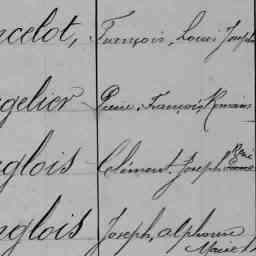 ncelot, François, Louis Joseph
ngelier Pierre, François, Romain
nglois Clément, Joseph René
nglois Joseph, Alphonse
Marie